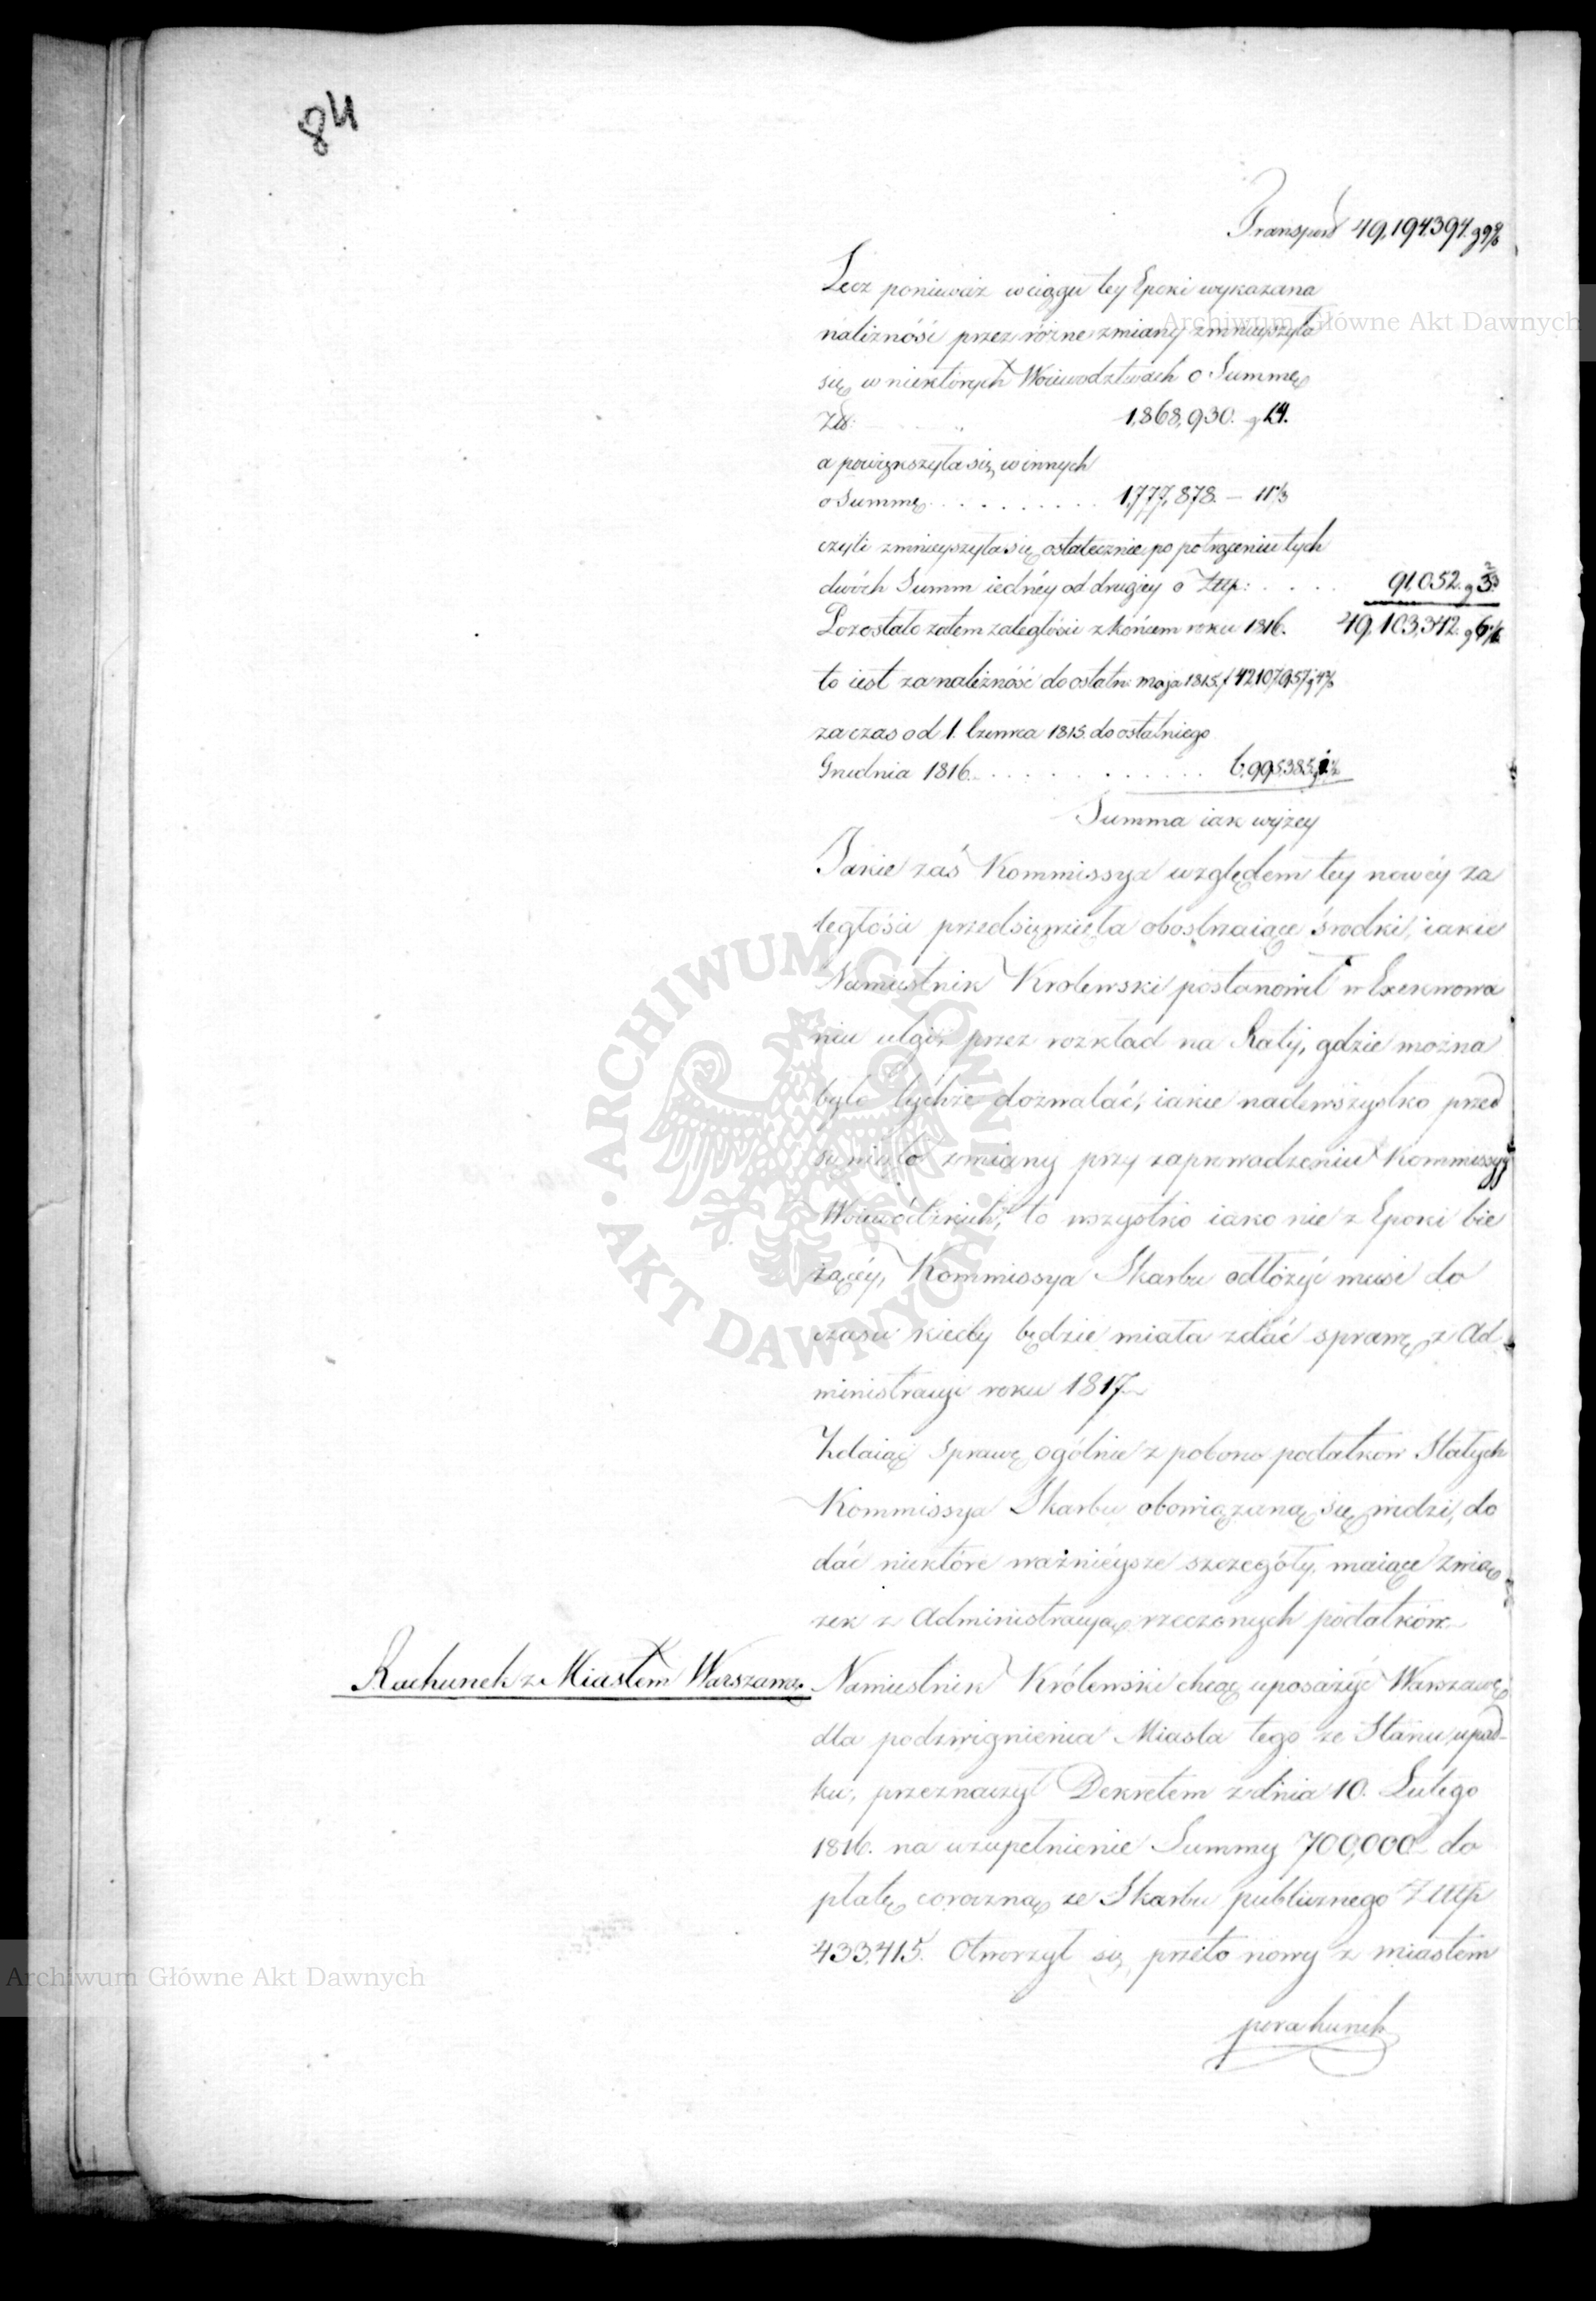 84
Transport 49,194,394. g 9⅚
Lecz ponieważ w ciągu tey Epoki wykazana
należność przez różne zmiany zmnieyszyła
się w niektórych Woiewodztwach o Summę
Złł: 1,868,930. g 14.
a powiększyła się w innych
o Summę . . . . . . . . . 1,777,878. — 11⅓
czyli zmnieyszyła się ostatecznie po potrąceniu tych
dwóch Summ iednéy od drugiey o Złłp: . . . . 91,052. g 3.
Pozostało zatem zaległości z końcem roku 1816. 49,103,342. g 6
to iest za należność do ostatn: maja 1815. f 42,107,957 g 4
za czas od 1. Czerwca 1815. do ostatniego
Grudnia 1816. . . . . . . . . . . . 6,995,385. g
Summa iak wyżey
Jakie zaś Kommissya względem tey nowéy za
ległości przedsięwzięła obostrzaiące środki, iakie
Namiestnik Krolewski postanowił w Exekwowa
niu ulgi, przez rozkład na Raty, gdzie można
było tychże dozwalać, iakie nadewszystko przed
zmiany przy zaprowadzeniu Kommissyy
Woiewódzkich, to wszystko iako nie z Epoki bie
żącéy, Kommissya Skarbu odłożyć musi do
czasu kiedy będzie miała zdać sprawę z Ad
ministracyi roku 1817.
Zdaiąc Sprawę ogólnie z poboru podatków Stałych
Kommissya Skarbu obowiązaną się widzi, do
dać niektóre ważnieysze szczegóły, maiące zwią
zek z Administracyą rzeczonych podatków.
Rachunek z Miastem Warszawą. Namiestnik Królewski chcąc uposażyć Warszawę
dla podzwignienia Miasta tego ze Stanu upad-
ku, przeznaczył Dekretem z dnia 10. Lutego
1816. na uzupełnienie Summy 700,000 do
płatę coroczną ze Skarbu publicznego Złłp
433,415. Otworzył się przeto nowy z miastem
porachunek
Archiwum Główne Akt Dawnych
ARCHIWUM GŁÓWNE · AKT DAWNYCH ·
Archiwum Główne Akt Dawnych